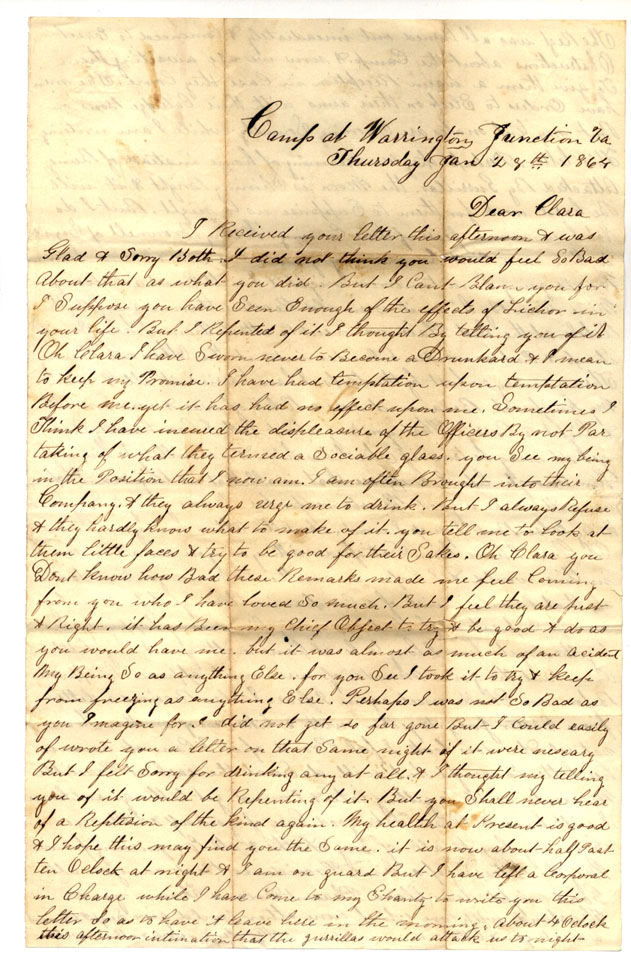 Camp at Warrington Junction Va
Thursday Jan 28th 1864
Dear Clara
I Received your letter this afternoon & was
Glad & Sorry Both. I did not think you would feel So Bad
About that as what you did. But I Cant Blame you for
I Suppose you have Seen Enough of the effects of Lichor in
your life. But I Repented of it. I thought By telling you of it
Oh Clara I have Sworn never to Become a Drunkard & I mean
to keep my Promise. I have had temptation upon temptation
Before me. yet it has had no effect upon me. Sometimes I
Think I have incured the displeasure of the Officers By not Par
taking of what they termed a Sociable glass. you See my being
in the Position that I now am. I am often Brought into their
Company. & they always urge me to drink. But I always Refuse
& they hardly know what to make of it. you tell me to look at
them little faces & try to be good for their Sakes. Oh Clara you
Dont know how Bad these Remarks made me feel Coming
from you who I have loved So much. But I feel they are just
& Right. it has Been my Chief Object to try & be good & do as
you would have me. but it was almost as much of an acident
My Being So as anything Else. for you See I took it to try & keep
from freezing as enything Else. Perhaps I was not So Bad as
you Imagine for I did not get so far gone But I Could easily
of wrote you a letter on that Same night if it were nescary
But I felt Sorry for drinking any at all. & I thought my telling
you of it would be Repenting of it. But you Shall never hear
of a Repetision of the kind again. My health at Present is good
& I hope this may find you the Same. it is now about half Past
ten Oclock at night & I am on guard But I have left a Corporal
in Charge while I have Come to my Shanty to write you this
letter So as to have it leave here in the morning. About 4 Oclock
this afternoon intimation that the gurrillas would attack us to night